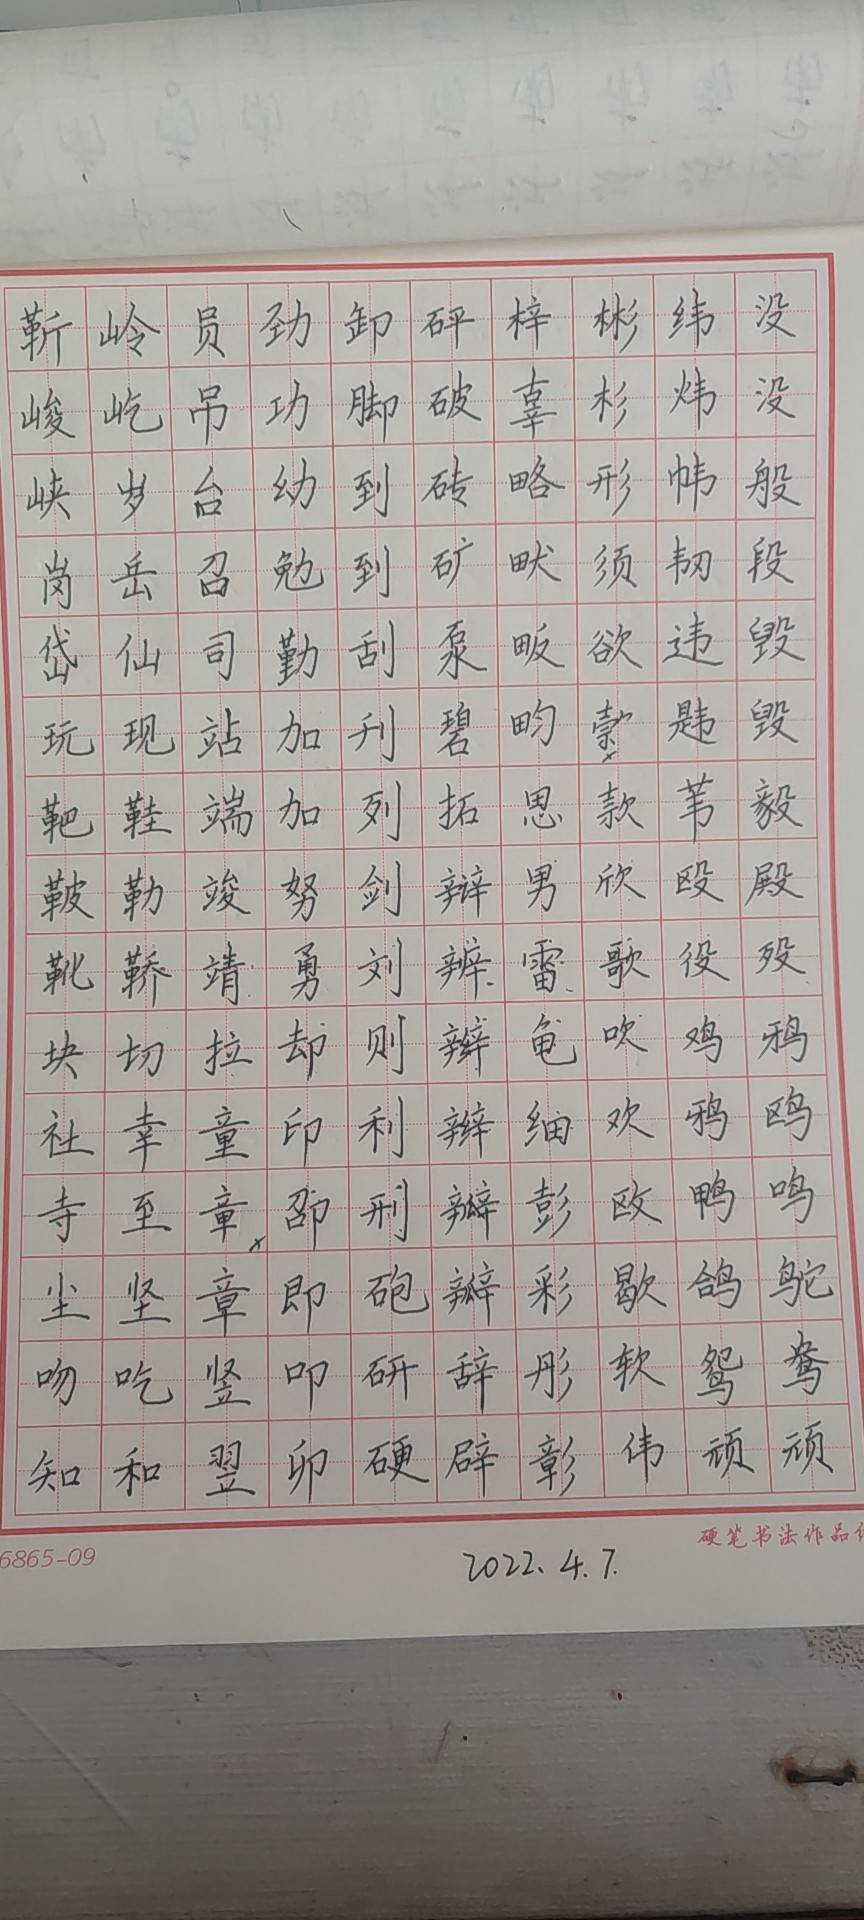 靳峻峡岗岱玩靶鞁靴块社寺尘吻知
岭屹岁岳仙现鞋勒鞒切幸至坚吃和
员吊台召司站端竣靖拉童章章竖翌
劲功幼勉勤加加努勇却印邵即叩卯
卸脚到到刮刊列剑刘则利刑砲研硬
砰破砖矿泵碧拓辩辨辫辫瓣瓣辞辟
梓辜略畎畈畇思男雷龟细彭彩彤彰
彬杉形须欲款欣歌吹欢欧歇软伟
纬炜帏韧违韪苇殴役鸡鸦鸭鸽鸳顽
没没般段毁毁毅殿殁鸦鸥鸣鸵鸯顽
6865-09
2022.4.7.
硬笔书法作品